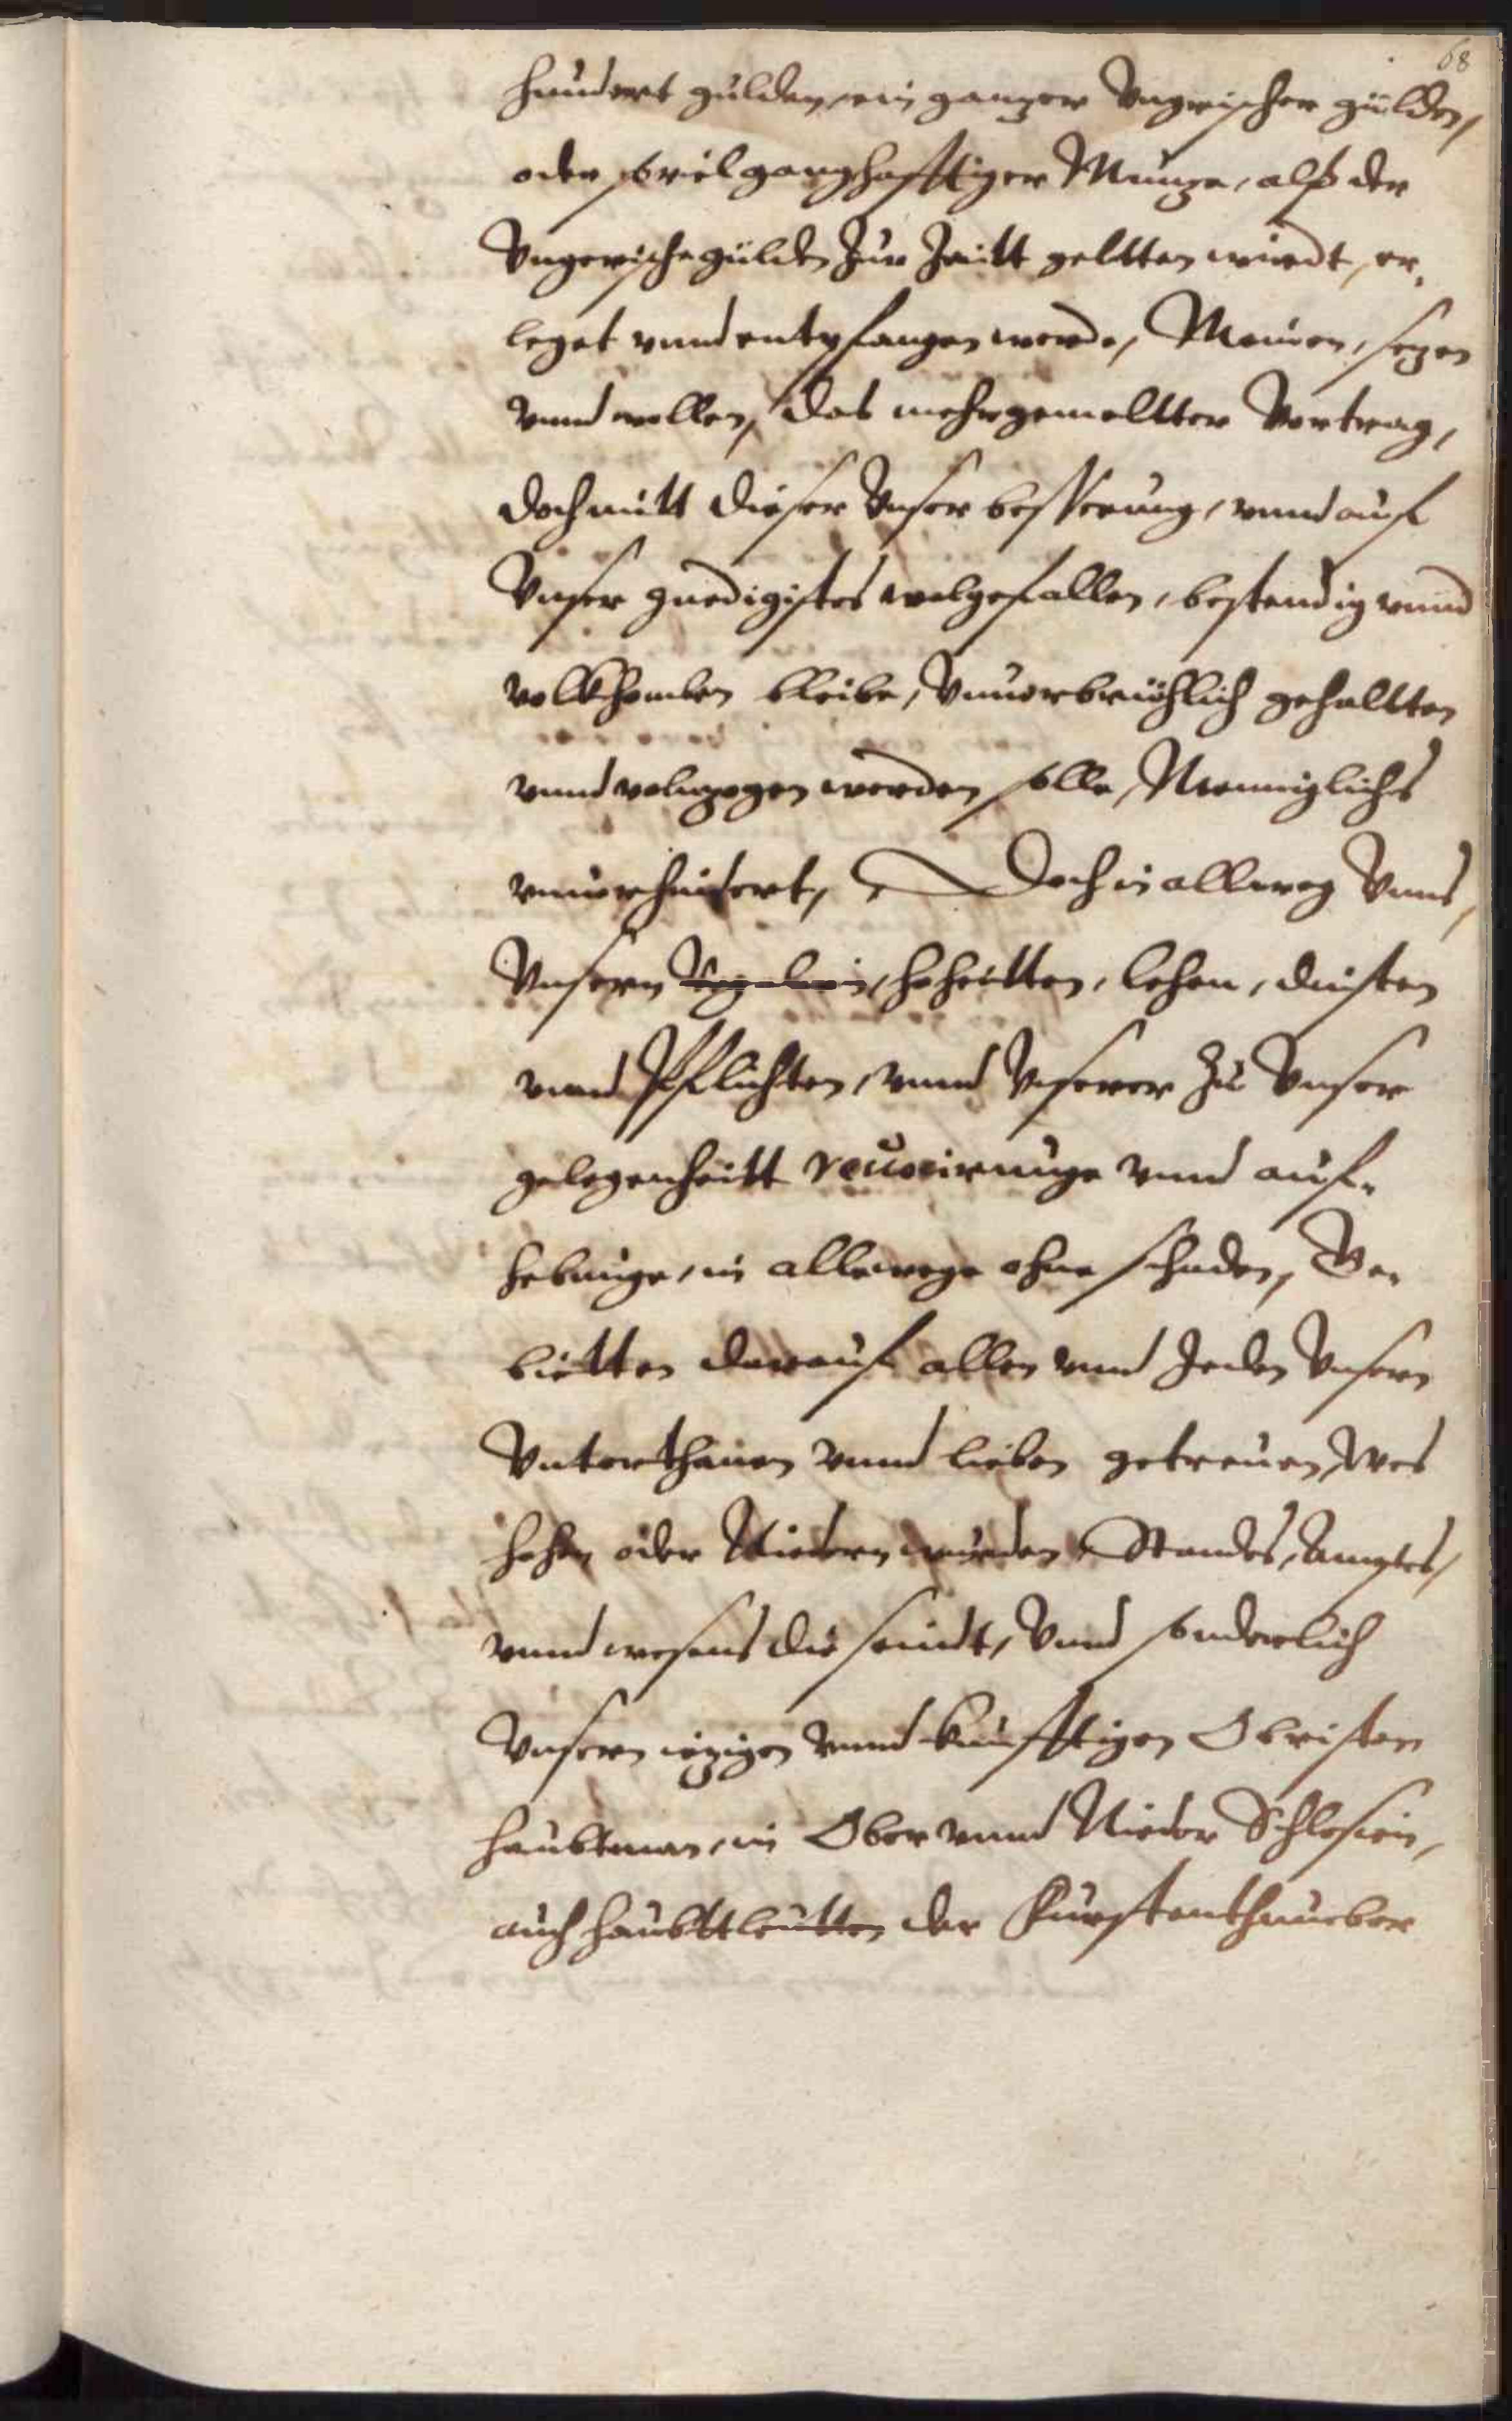 68
hundert gulden, ein ganzer Vngrischer gülden,
oder souiel ganghafftiger Münze, alß der
Vngerische gülden zur Zeitt geltten wirdt, er,
leget vnnd entpfangen werde, Meinen, sezen
vnnd wollen, das mehrgemeltter Vertrag,
doch mitt dieser Vnser besserung, vnnd auf
Vnser gnedigistes wolgefallen, bestendig vnnd
volkhomben bleibe, Vnuerbrüchlich gehaltten
vnnd volnzogen werden solle, Menniglichs
vnuerhindert, Doch in allweg Vnns,
Vnsern Regalien, hoheitten, lehen, dinsten
vnnd Pflichten, vnnd Vnserer zu Vnser
gelegenheitt reuocirunge vnnd auf,
hebunge, in allewege ohne schaden, Ge,
bietten darauf allen vnnd Jeden Vnsern
Vnterthanen vnnd lieben getreuen, Wes
hohen oder Niedern wurden, Standes, Ambtes,
vnnd wesens die seindt, Vnnd sonderlich
Vnsern iezigen vnnd künfftigen Obristen
haubtman, in Ober vnnd Nieder Schlesien,
auch haubttleutten der Fürstenthumber